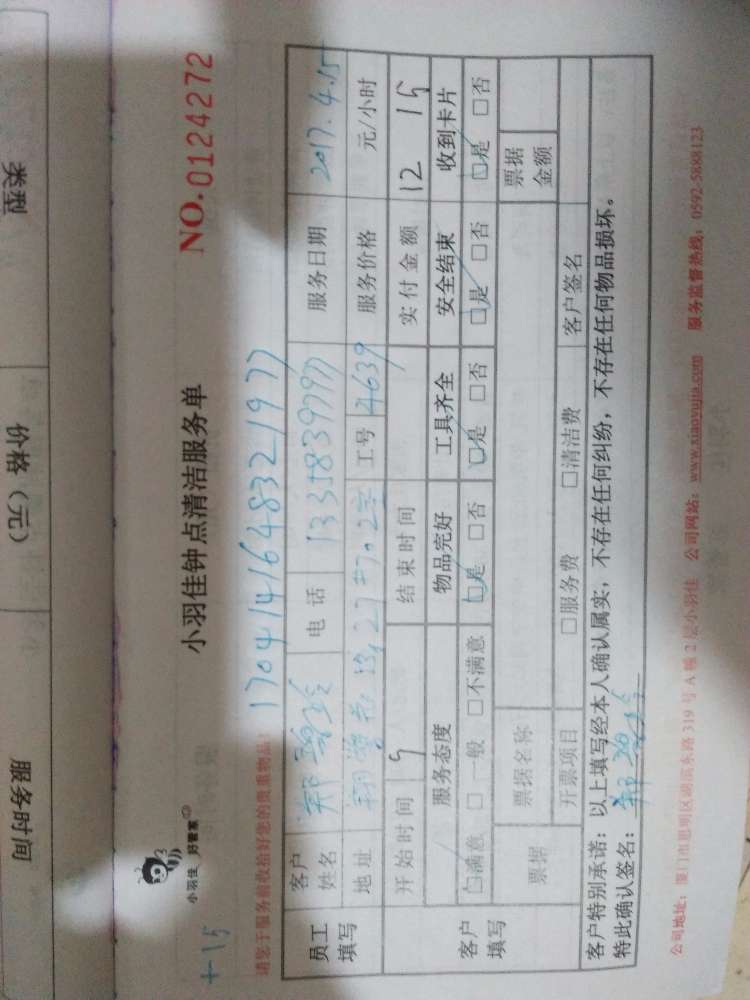 类型
价格（元）
服务时间
+15
小羽佳 好管家
小羽佳钟点清洁服务单
NO.0124272
请您于服务前收拾好您的贵重物品!
1704141648321977
员工填写
客户姓名
电话 13358397977
服务日期 2017.4.15
地址
工号 4639
服务价格 元/小时
客户填写
开始时间 9
结束时间
实付金额 12 15
服务态度 物品完好 工具齐全 安全结束 收到卡片
□满意 □一般 □不满意 □是 □否 □是 □否 □是 □否 □是 □否
票据
票据名称
票据金额
开票项目 □服务费 □清洁费 客户签名
客户特别承诺：以上填写经本人确认属实，不存在任何纠纷，不存在任何物品损坏。
特此确认签名：
公司地址：厦门市思明区湖滨东路319号A幢2层小羽佳 公司网站：www.xiaoyujia.com 服务监督热线：0592-5888123